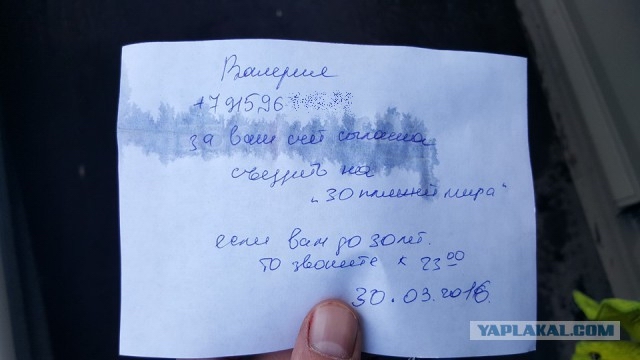 Валерия
+791596
за ваш счет согласна
съездить на
"30 пляжей мира"
если вам до 30 лет.
то звоните к 23 00
30.03.2016.
YAPLAKAL.COM